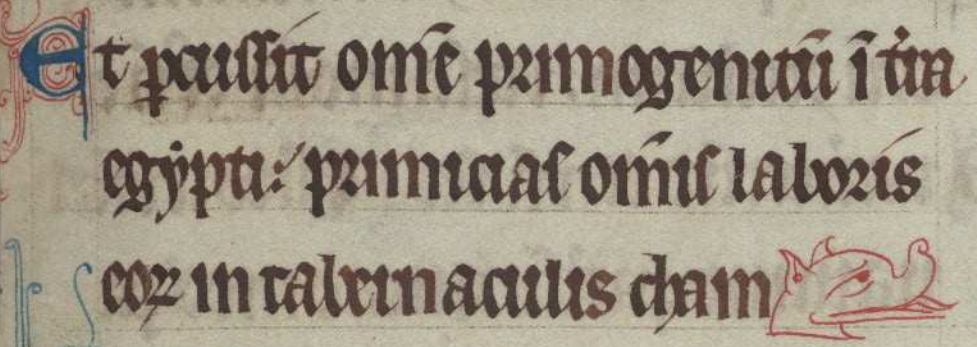 Et ꝑcussit om̄e primogenitū ī t̾ra
egẏpti: primicias om̄is laboris
eoꝝ in tabernaculis cham